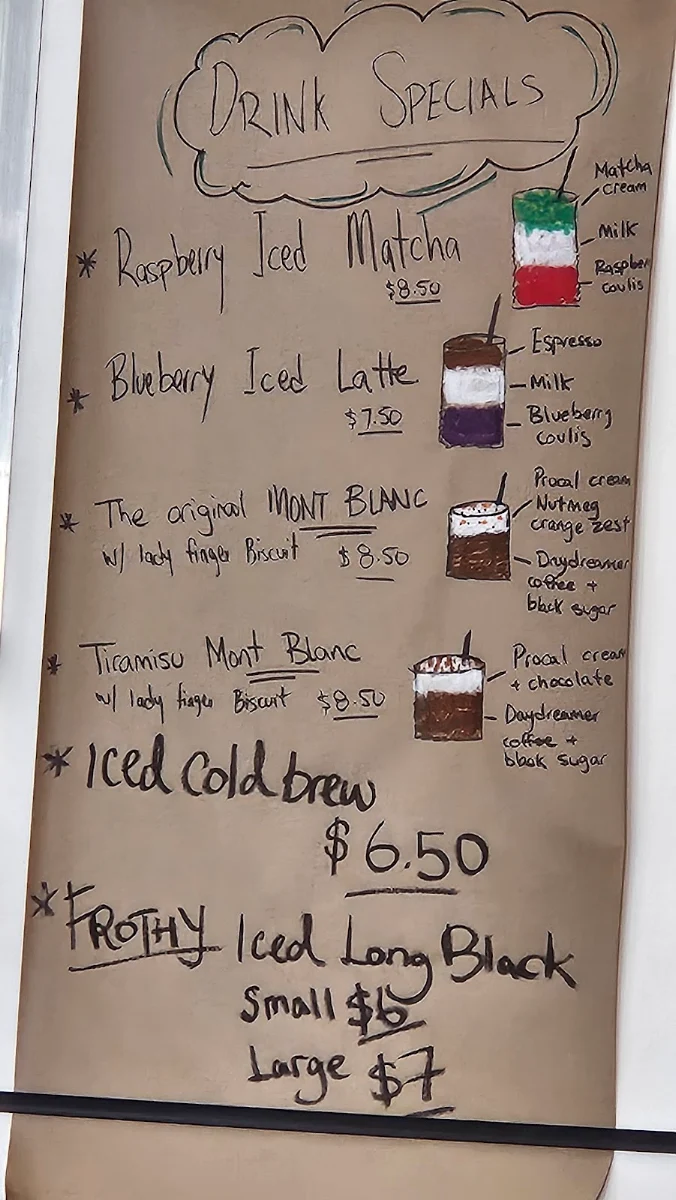 DRINK SPECIALS
* Raspberry Iced Matcha
$8.50
Matcha
cream
Milk
Raspber
coulis
* Blueberry Iced Latte
$7.50
Espresso
Milk
Blueberry
coulis
* The original MONT BLANC
w/ lady finger Biscuit $8.50
Procal cream
Nutmeg
orange zest
Daydreamer
coffee +
black sugar
* Tiramisu Mont Blanc
w/ lady finger Biscuit $8.50
Procal cream
+ chocolate
Daydreamer
coffee +
black sugar
* Iced Cold brew
$6.50
* FROTHY Iced Long Black
Small $6
Large $7